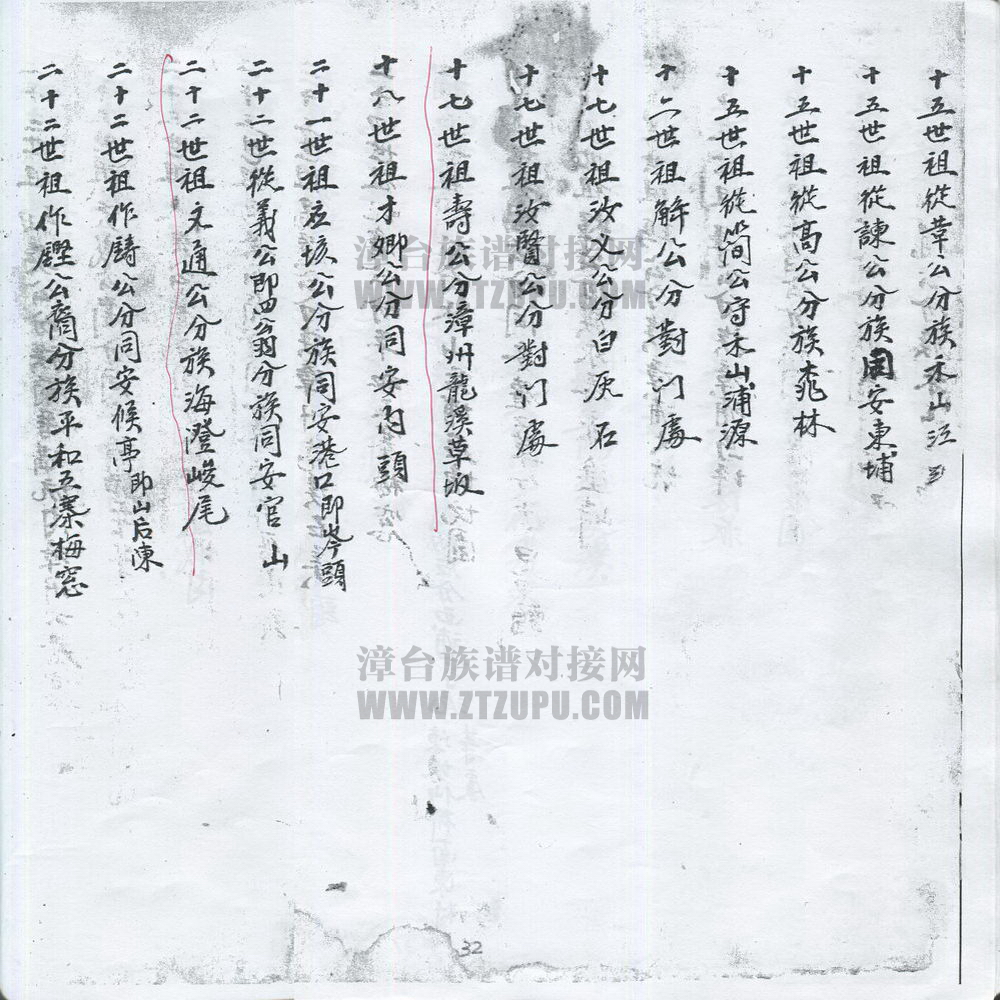 十五世祖從葦公分族禾山江
十五世祖從諫公分族同安東埔
十五世祖從高公分族桃林
十五世祖從簡公守禾山浦源
十六世祖解公分對门處
十七世祖汝义公分白灰石
十七世祖汝醫公分對门處
十七世祖壽公分漳州龍溪草坂
十八世祖才卿公分同安内頭
二十一世祖应垓公分族同安港口即岑頭
二十二世從義公即四翁分族同安官山
二十二世祖文通公分族海澄峻尾
二十二世祖作鑄公分同安候亭即山后陳
二十二世祖作鏗公裔分族平和五寨梅窓
漳台族谱对接网
WWW.ZTZUPU.COM
漳台族谱对接网
WWW.ZTZUPU.COM
32